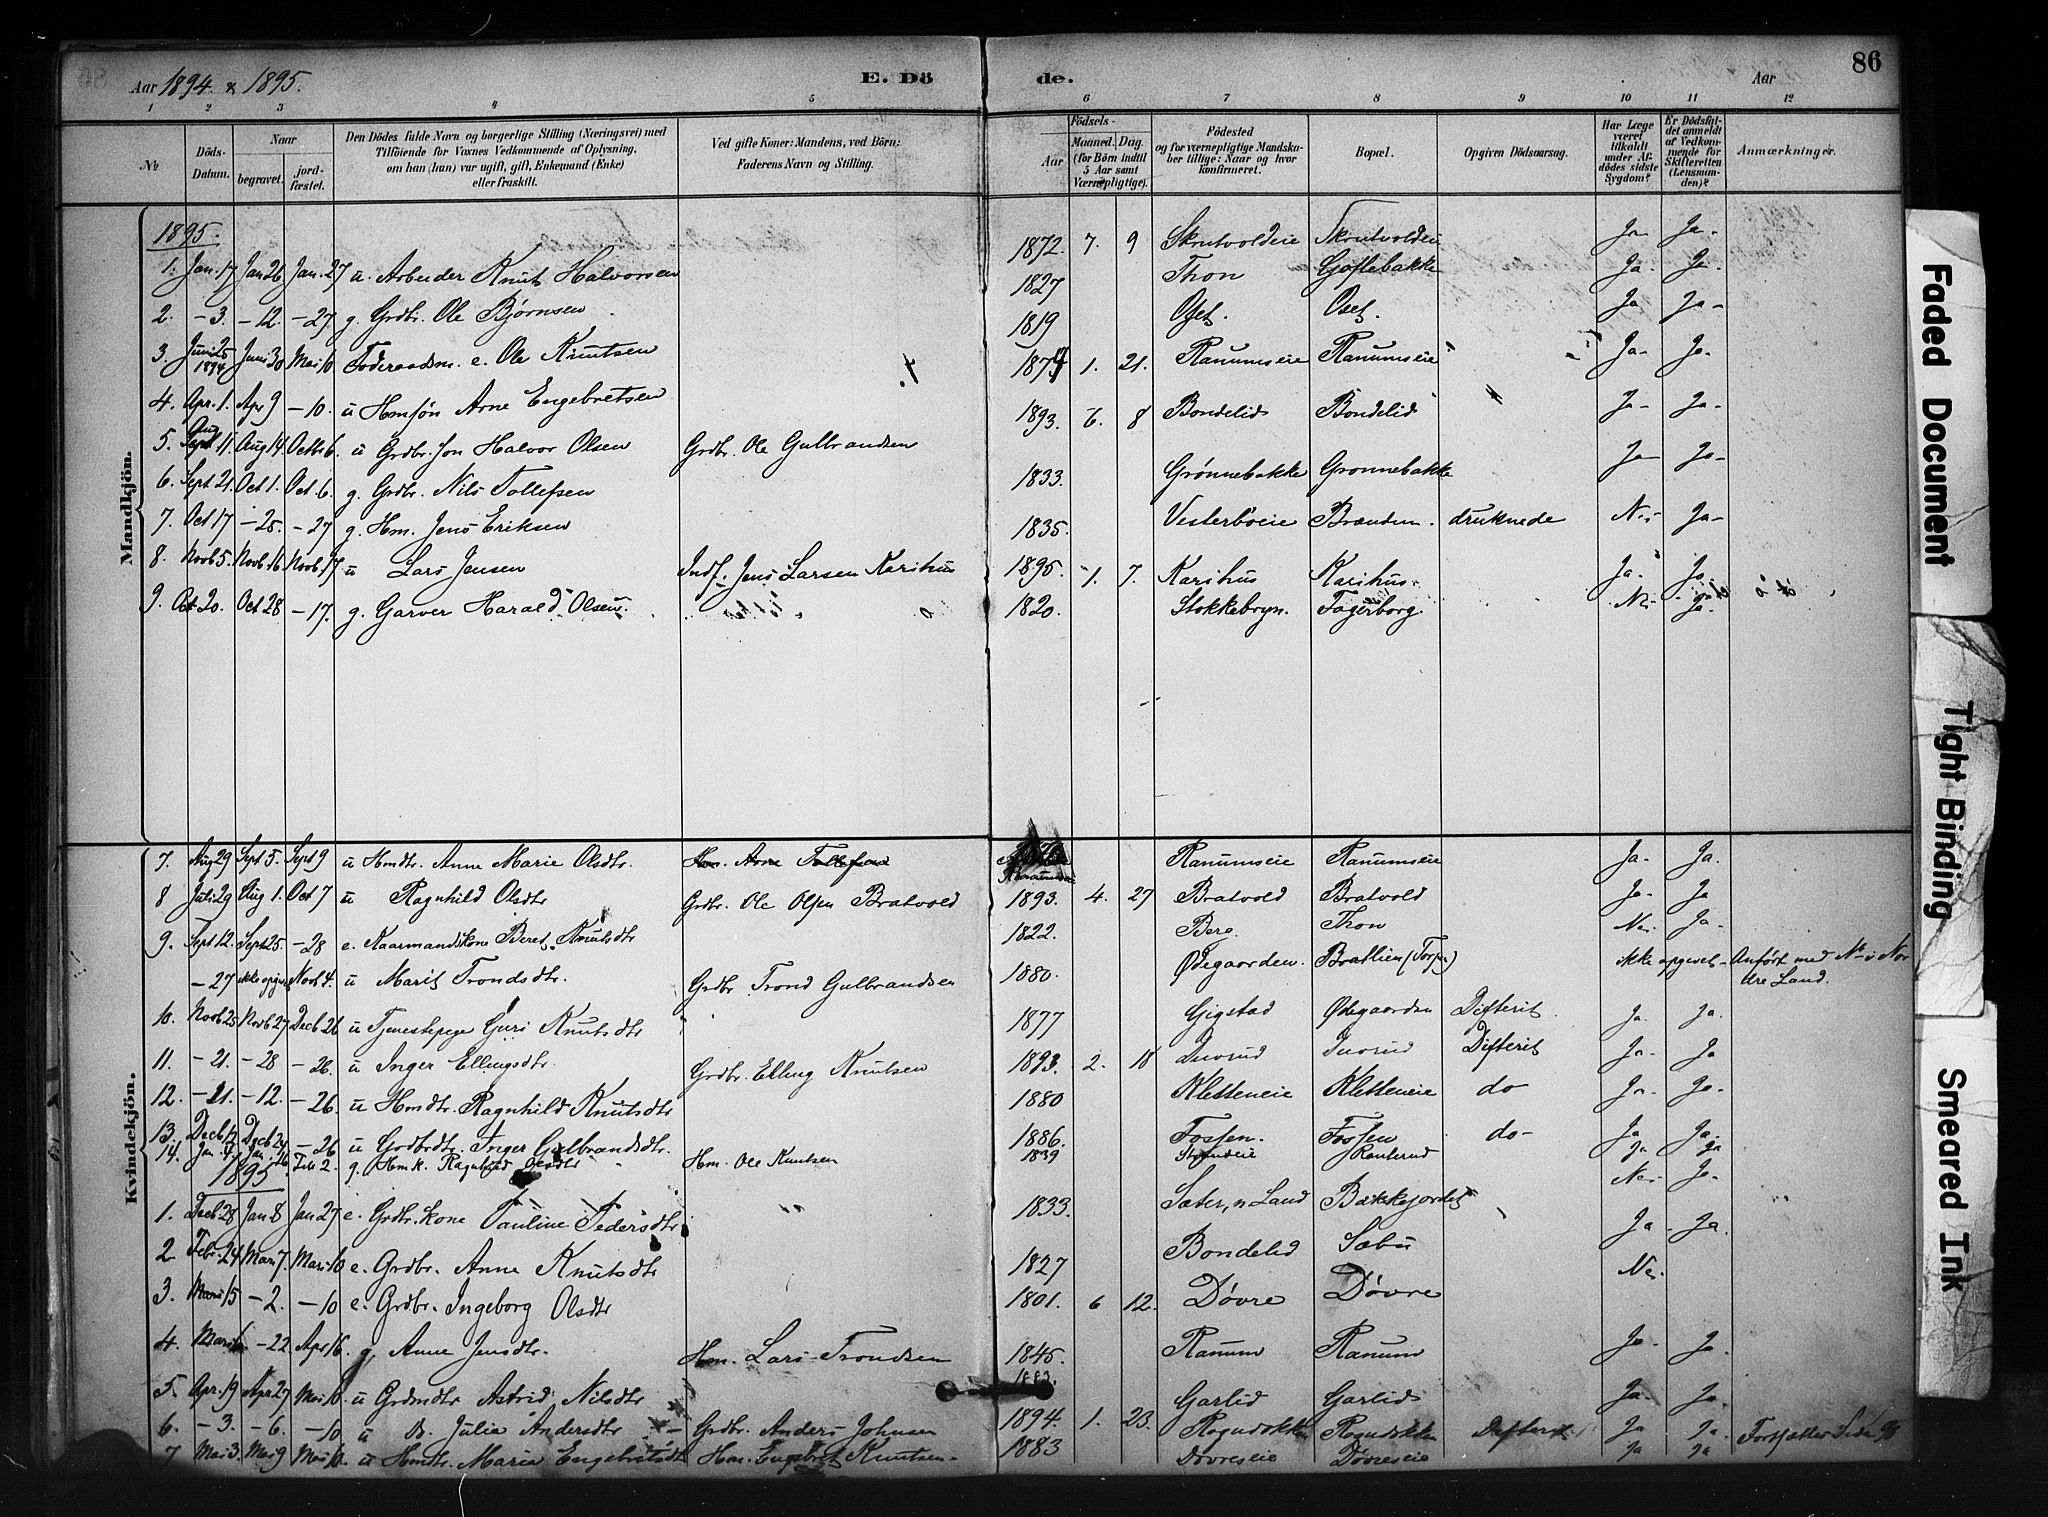 Aar 1894 & 1895.
E. Dö
de.
Aar
86
1 2 3 4 5 6 7 8 9 10 11 12
№
Döds-Datum.
Naar
begravet.
jord-fæstet.
Den Dödes fulde Navn og borgerlige Stilling (Næringsvei) med
Tilföiende for Voxnes Vedkommende af Oplysning,
om han (hun) var ugift, gift, Enkemand (Enke)
eller fraskilt.
Ved gifte Koner: Mandens, ved Börn:
Faderens Navn og Stilling.
Födsels-
Aar
Maaned. Dag.
(for Börn indtil
5 Aar samt
Værnepligtige).
Födested
og for værnepligtige Mandska-
ber tillige: Naar og hvor
konfirmeret.
Bopæl.
Opgiven Dödsaarsag.
Har Læge
været
tilkaldt
under Af-
dödes sidste
Sygdom?
Er Dödsfal-
det anmeldt
af Vedkom-
mende for
Skifteretten
(Lensman-
den)?
Anmærkninger.
Mandkjön.
1895.
1. Jan. 17 Jan 26 Jan. 27 u. Arbeider Knut Halvorsen 1872 7. 9 Skrutvoldeie Skrutvoldeie Ja- Ja-
2. -3. -12. -27 g. Grdbr. Ole Bjørnsen 1827 Thon Ja- Ja-
3. Juni 25 1894 Juni 30 Mai 10 Føderaadsm. e. Ole Knutsen 1819 Oset. Oset. Ja Ja-
4. Apr. 1. Apr 9 -10. u Hmsøn Arne Engebretsen 1. 21. Ranumseie Ranumseie Ja- Ja-
5. Aug 11. Aug 14. Octbr 6. u Grdbr. søn Halvor Olsen Grdbr. Ole Gulbrandsen 1893. 6. 8 Bondelid Bondelid Ja- Ja-
6. Sept 21. Oct 1. Oct 6. g. Grdbr. Nils Tollefsen 1833. Grønnebakke Grønnebakke Ja- Ja-
7. Oct 17 -25. -27 g. Hm. Jens Eriksen 1835. Vesterbøeie Brænden. druknede Nei Ja-
8. Novb 5. Novb. 16 Novb. 17 u Lars Jensen Indf. Jens Larsen Karihus 1895. 1. 7. Karihus Karihus. Ja- Ja
9. Oct 20. Oct 28 -17. g. Garver Harald Olsen. 1820. Stokkebryn. Fagerborg Nei Ja-
Kvindekjön.
7. Aug 29 Sept 5. Sept 9 u Hmdtr. Anne Marie Olsdtr. Hm. Arne Tollefsen Ranumseie Ranumseie Ja- Ja.
8 Juli 29 Aug 1. Oct 7 u Ragnhild Olsdtr Grdbr. Ole Olsen Bratvold 1893. 4. 27 Bratvold Bratvold Ja- Ja
9. Sept 12. Sept 25. -28 e. Kaarmandskone Beret Knutsdtr 1822. Berg. Thon Nei Ja-
-27 ikke opgivet Novb 4. u Marit Trondsdtr. Grdbr. Trond Gulbrandsen 1880. Ødegaarden. Bratlien (Torpa) ikke opgivet- Anført med № i Nor
dre Land.
10. Novb 25 Novb 27 Decb 26 u Tjenestepige Guri Knutsdtr 1877 Gigstad Ødegaarden Difterit. Ja. Ja.
11. -21. -28 -26. u Inger Ellingsdtr. Grdbr. Elling Knutsen 1893. 2. 18 Difterit Ja- Ja
12. -21. -12. -26. u Hmdtr. Ragnhild Knutsdtr 1880 Kletteneie Kletteneie do Ja- Ja-
13. Decb 12 Decb 24 -26 u Grdbrdtr. Inger Gulbrandsdtr. 1886. Fossen. Fossen do- Ja Ja-
14. Jan. 4 Jan. 16. Feb. 2. g. Hmk. Ragnhild Olsdtr Hm. Ole Knutsen 1839 Strandeie Ja Ja
1895
1. Decb 28 Jan 8 Jan 27 e. Grdbr. kone Pauline Pedersdtr 1833. Sæter, n Land Bakkejordet Nei Ja-
2 Febr. 24 Mars 7. Mars 10 e. Grdbr. Anne Knutsdtr 1827 Bondelid Sæbu Ja- Ja.
3. Mars 15 -2. -10 e. Grdbr. Ingeborg Olsdtr 1801. 6 12. Døvre Døvre Nei.
4. -22. Apr 16. g. Anne Jensdtr. Hm. Lars Trondsen 1845. Ranum Ranum Ja- Ja.
5. Apr. 19 Apr. 27 Mai 10. u Grdmdtr Astrid Nilsdtr 1883. Garlid Garlid Ja- Ja.
6. -3. -6. -10 u Do. Julia Andersdtr - Grdbr. Anders Johnsen 1894. 1. 23. Rogndokken Rogndokken Difterit Ja Ja- Fortsætter Side
7 Mai 3. Mai 9 Mai 10. u Hmdtr. Maria Engebretsdtr Hm. Engebret Knutsen- 1883 Døvreseie Døvreseie Ja Ja
Faded Document
Tight Binding
Smeared Ink